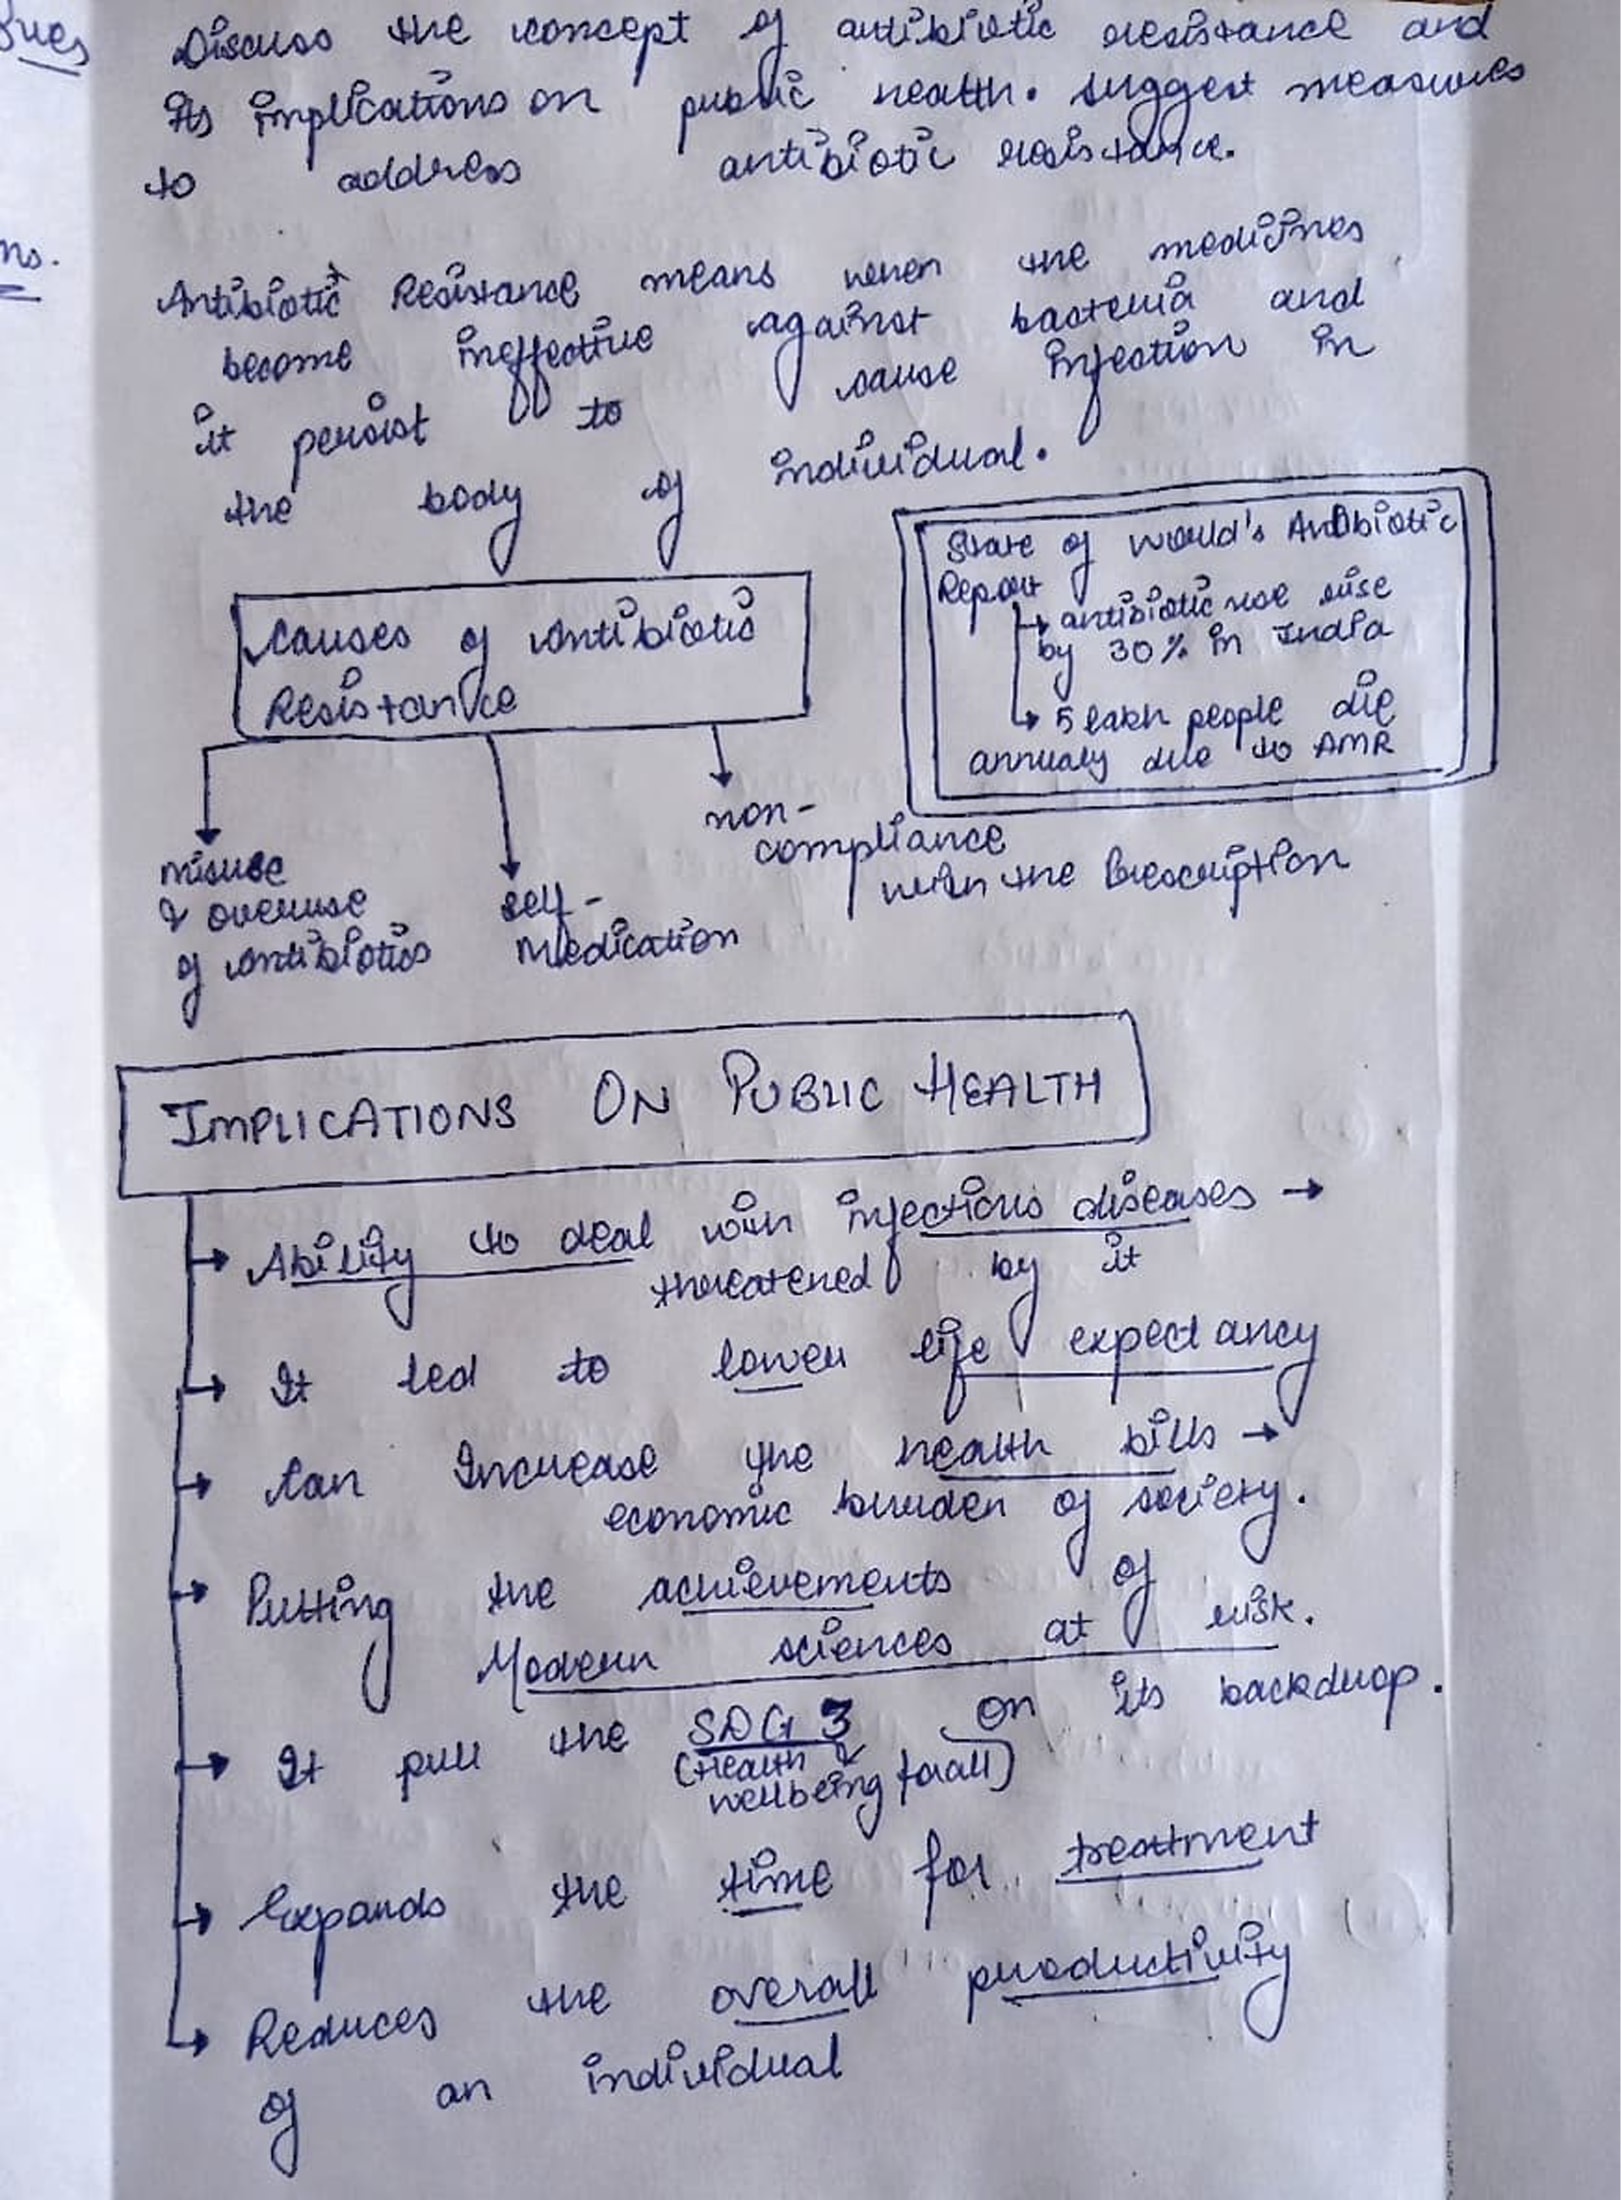 Ques
Discuss the concept of antibiotic resistance and
its implications on public health. Suggest measures
to address antibiotic resistance.
Ans.
Antibiotic Resistance means when the medicines
become ineffective against bacteria and
it persist to cause infection in
the body of individual.
State of World's Antibiotic
Report
→ antibiotic use rise
by 30% in India
→ 5 lakh people die
annualy due to AMR
Causes of Antibiotic
Resistance
misuse
& overuse
of Antibiotics
self-
Medication
non-
compliance
with the Prescription
IMPLICATIONS ON PUBLIC HEALTH
→ Ability to deal with infectious diseases →
threatened by it
→ It led to lower life expectancy
→ Can Increase the health bills →
economic burden of society.
→ Putting the achievements of
Modern sciences at risk.
→ It pull the SDG 3 on its backdrop.
(Health &
wellbeing for all)
→ Expands the time for treatment
→ Reduces the overall productivity
of an individual